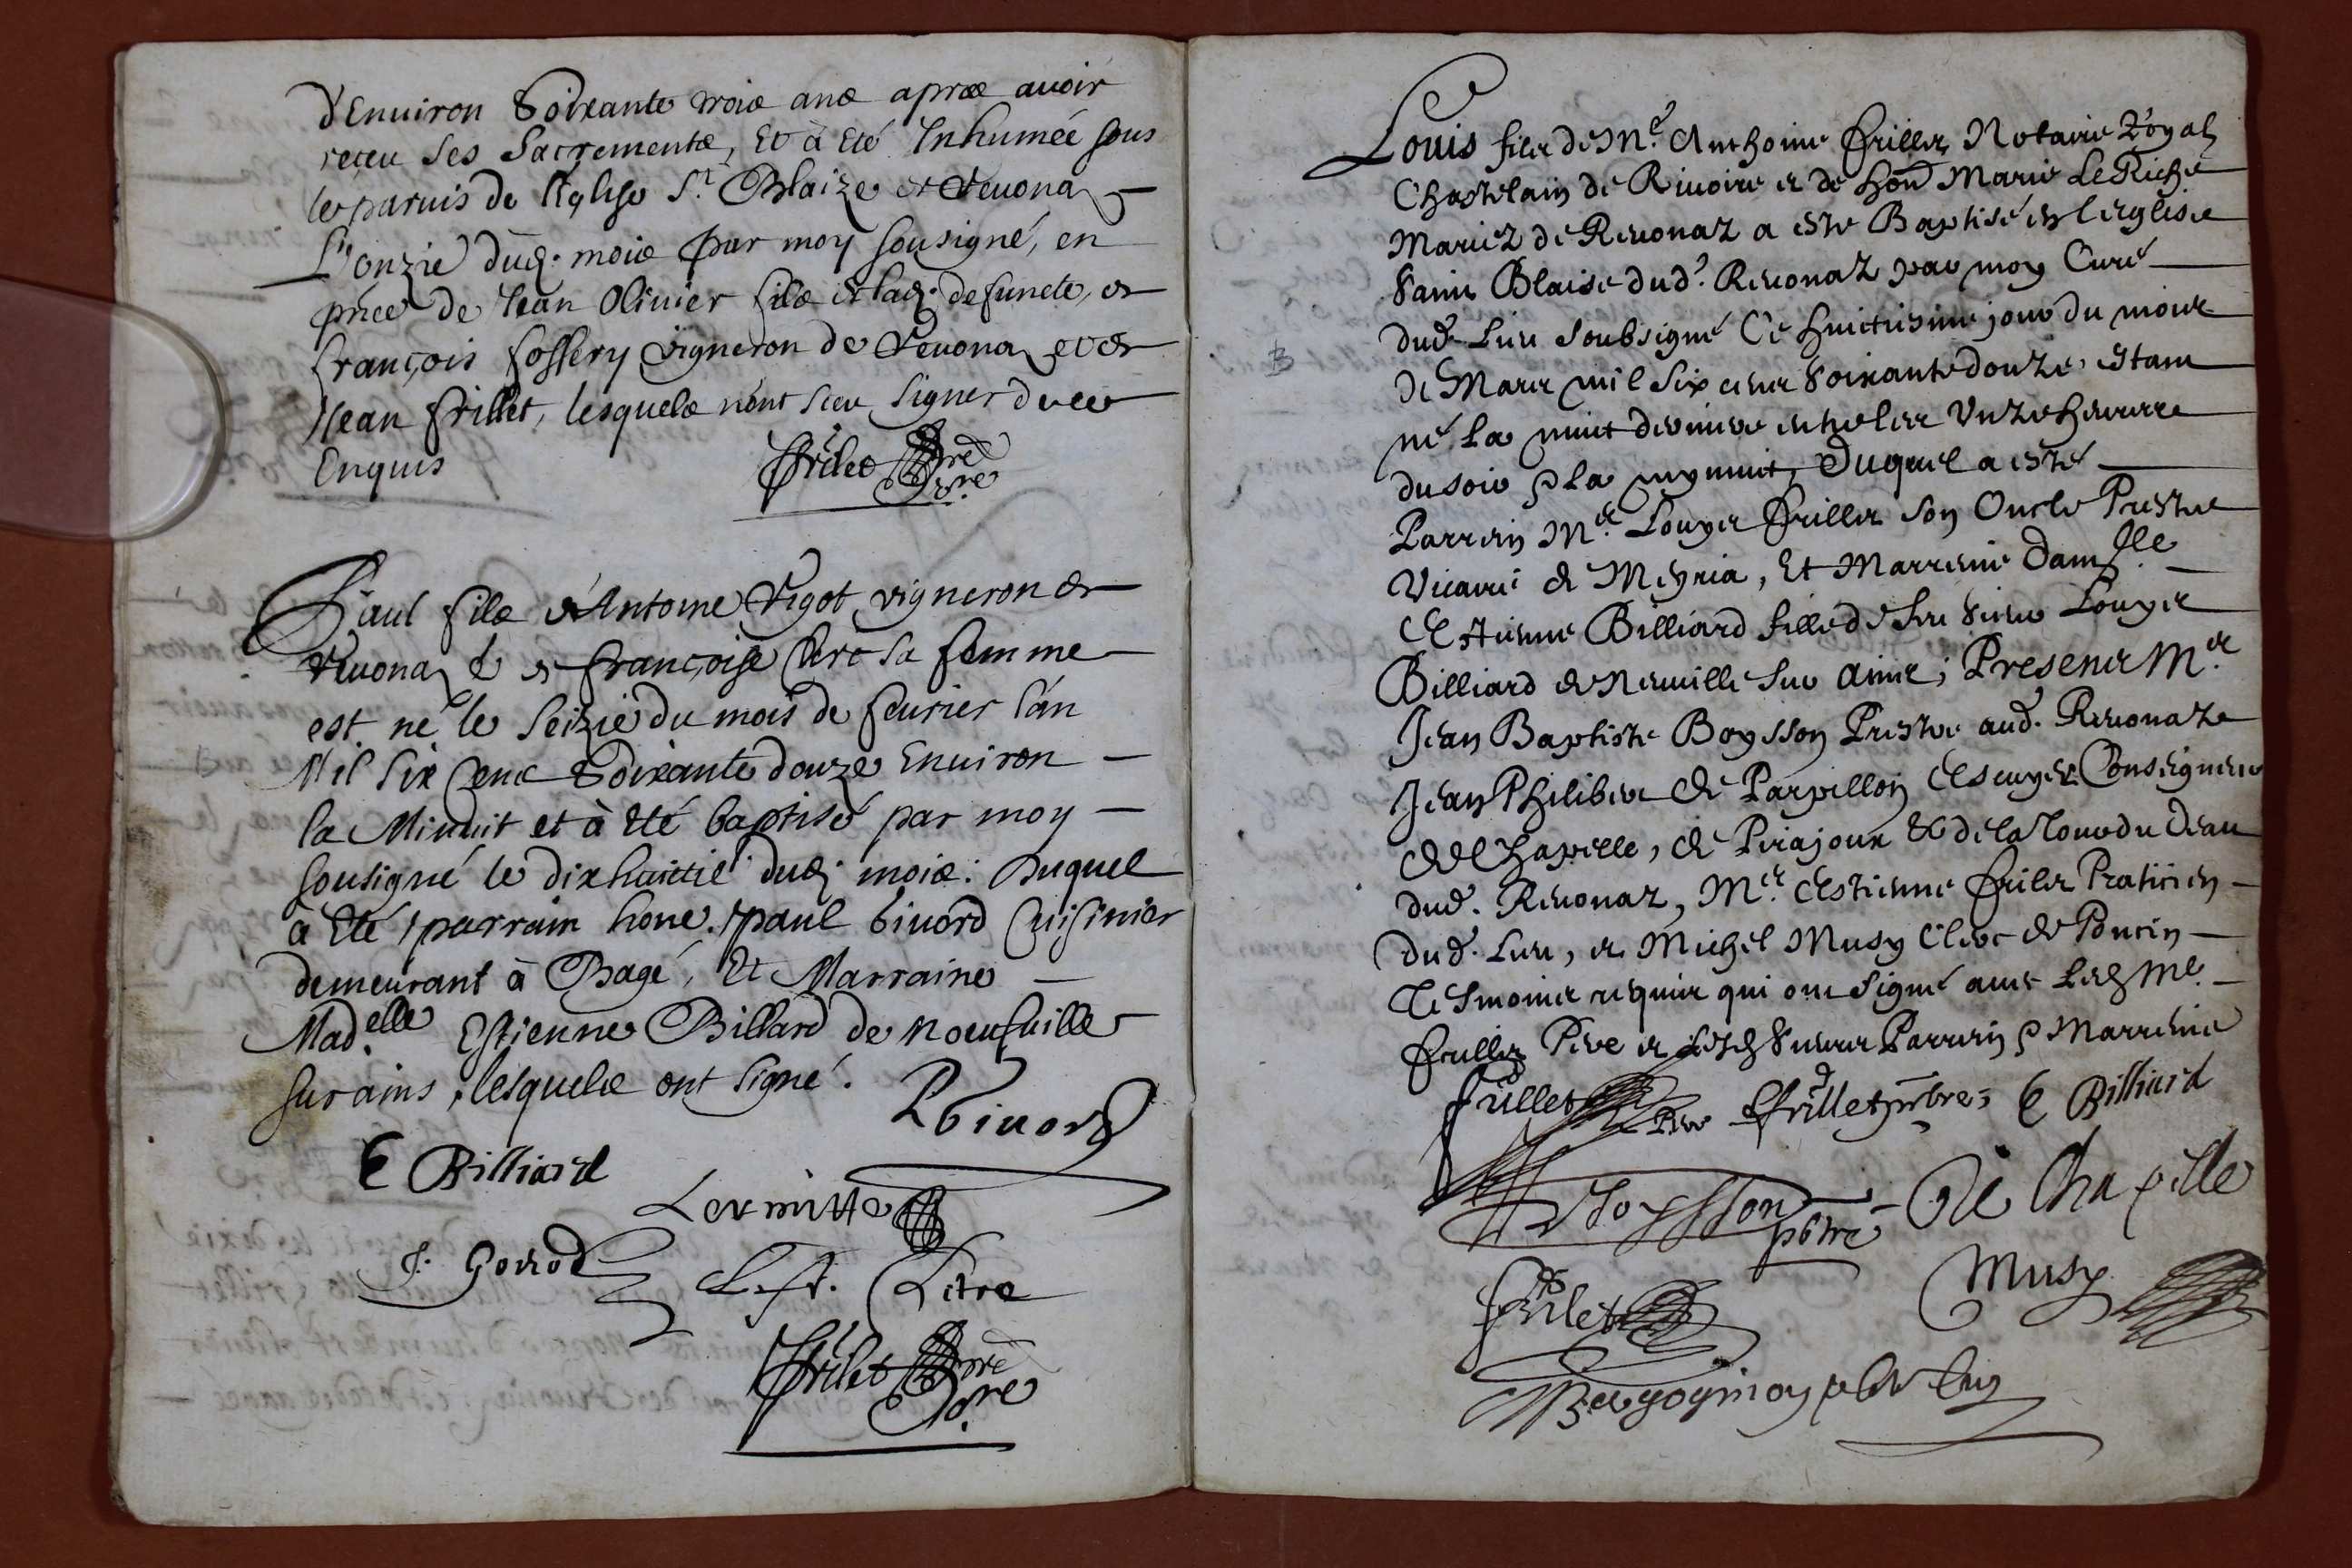 d'Enuiron Soixante trois ans apres auoir
receu ses Sacrements, Et à eté Inhumée sous
le paruis de l'Eglise St. Blaize de Reuonaz
L'onzie dud. mois par moy sousigné, en
pñce de Jean Oliuier fils de lad. defuncte, et
françois fossery vigneron de Reuonaz et de
Jean frillet, lesquels n'ont sceu signer de ce
Enquis
frilet pre
Paul fils d'Antoine Vigot vigneron de
Reuonaz & de françoise sa femme
est né le Seizie du mois de feurier l'an
Mil six cens Soixante douze Enuiron
la Minuit et à eté baptisé par moy
sousigné le dixhuittie dud. mois: Duquel
à eté parrain hone. paul Giuord Cuisinier
demeurant à Bagé, Et Marraine
Mad.elle Estienne Billard de noeufuille
sur ains, lesquels ont signé.
P Giuord
E Billiard
Lermitte
J. Goirod
frilet pre
Louis filz de Me. Anthoine frillet Notaire Royal
Chastelain de Riuoire et de hon. Marie Le Riche
Mariez de Reuonaz a este Baptisé en l'eglise
Sainct Blaise dud. Reuonaz par moy Curé
dud. Lieu Soubsigné Ce huictiesme jour du mois
de Mars mil six cens soixante douze, estant
né la nuict derniere entre les unze heures
du soir & la mynuit, Duquel a esté
Parrein Mre. Louys frillet son Oncle Prestre
Vicaire de Meyria, Et Marreine Dam.lle
Estienne Billiard fille de feu sieur Louys
Billiard de Neuuille sur Ains; Presens Mre.
Jean Baptiste Boysson Prestre aud. Reuonaz
Jean Philibert de Parpillon Escuyer Conseigneur
de Chapelle, de Pirajoux & de la Tour du Deau
dud. Reuonaz, Me. Estienne frilet Praticien
dud. Lieu, et Michel Musy Clerc de Poncin
Tesmoins requis qui ont signé auec Led. Me.
frillet Pere et Lesd. Sieurs Parrein & Marreine
frillet Pere L frillet pbre E Billiard
Boysson pbtre De Chapelle
frilet Musy